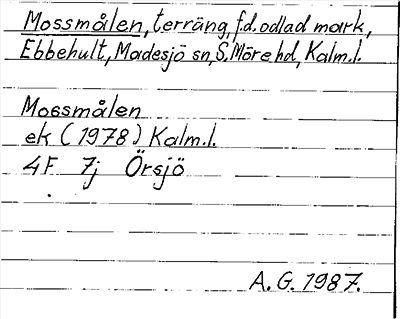 Mossmålen, terräng, f.d. odlad mark,
Ebbehult, Madesjö sn, S. Möre hd, Kalm.l.
Mossmålen
ek (1978) Kalm.l.
4F 7j Örsjö
A.G. 1987.